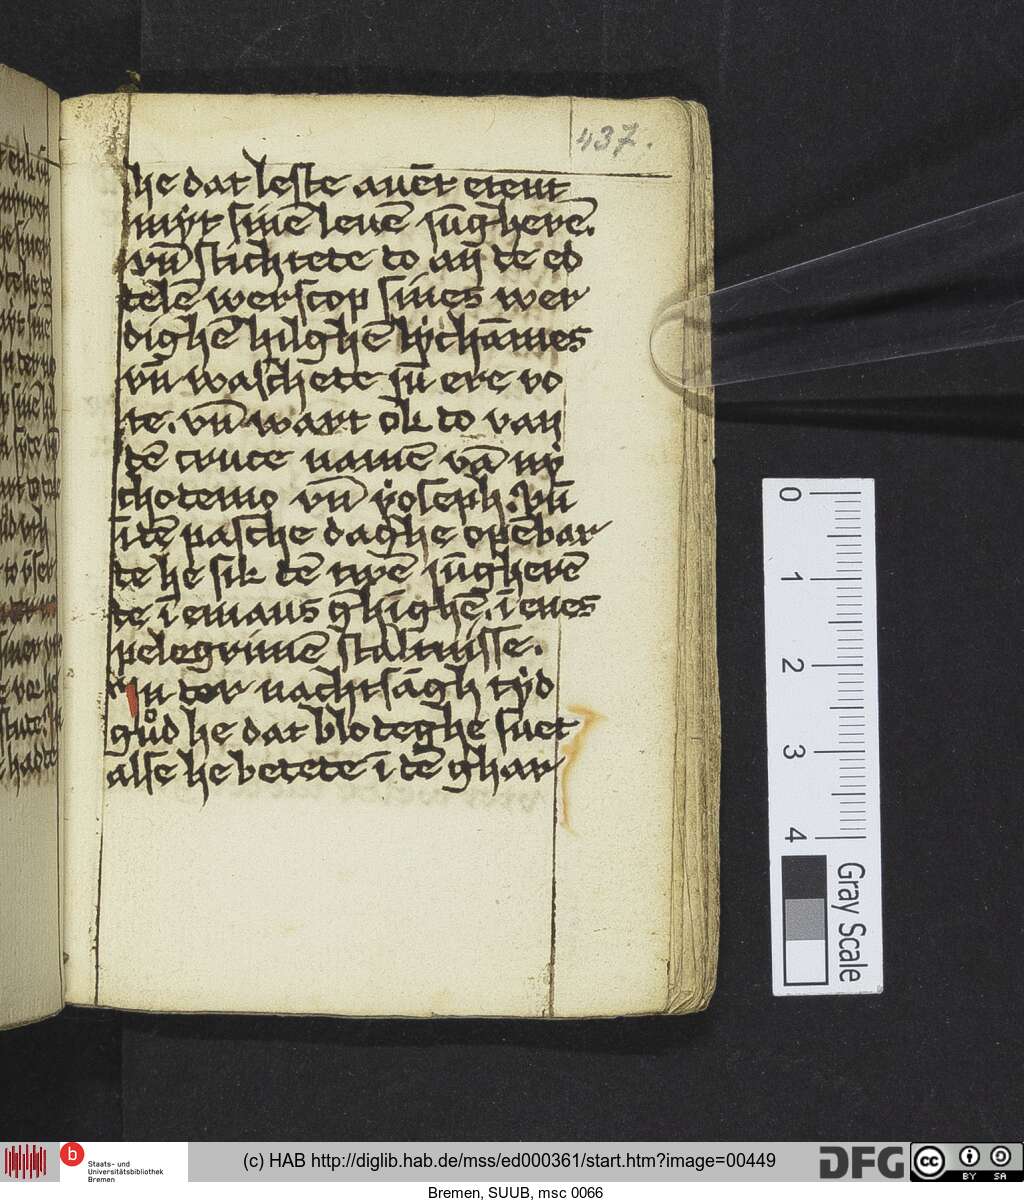 437.
he dat leste auēt etent
mÿt sinē leuē iūgherē.
vn̄ stichtete do an de ed
delē werscop sines wer
dighē hilghē lÿchāmes
vn̄ waschete iū ere vo
te. vn̄ wart ok do van
dē cruce namē vā nÿ
chodemo vn̄ ÿoseph. vn̄
ī dē pasche daghe opēbar
de he sik dē twē iūgherē
de ī emaus ghīghē. ī enes
pelegrimē staltnisse.
In der nacht sāgh tÿd
gůd he dat blodeghe suet
alse he bedete ī dē ghar
0
1
2
3
4
Gray Scale
b
Staats- und
Universitätsbibliothek
Bremen
(c) HAB http://diglib.hab.de/mss/ed000361/start.htm?image=00449
DFG
cc
BY SA
Bremen, SUUB, msc 0066